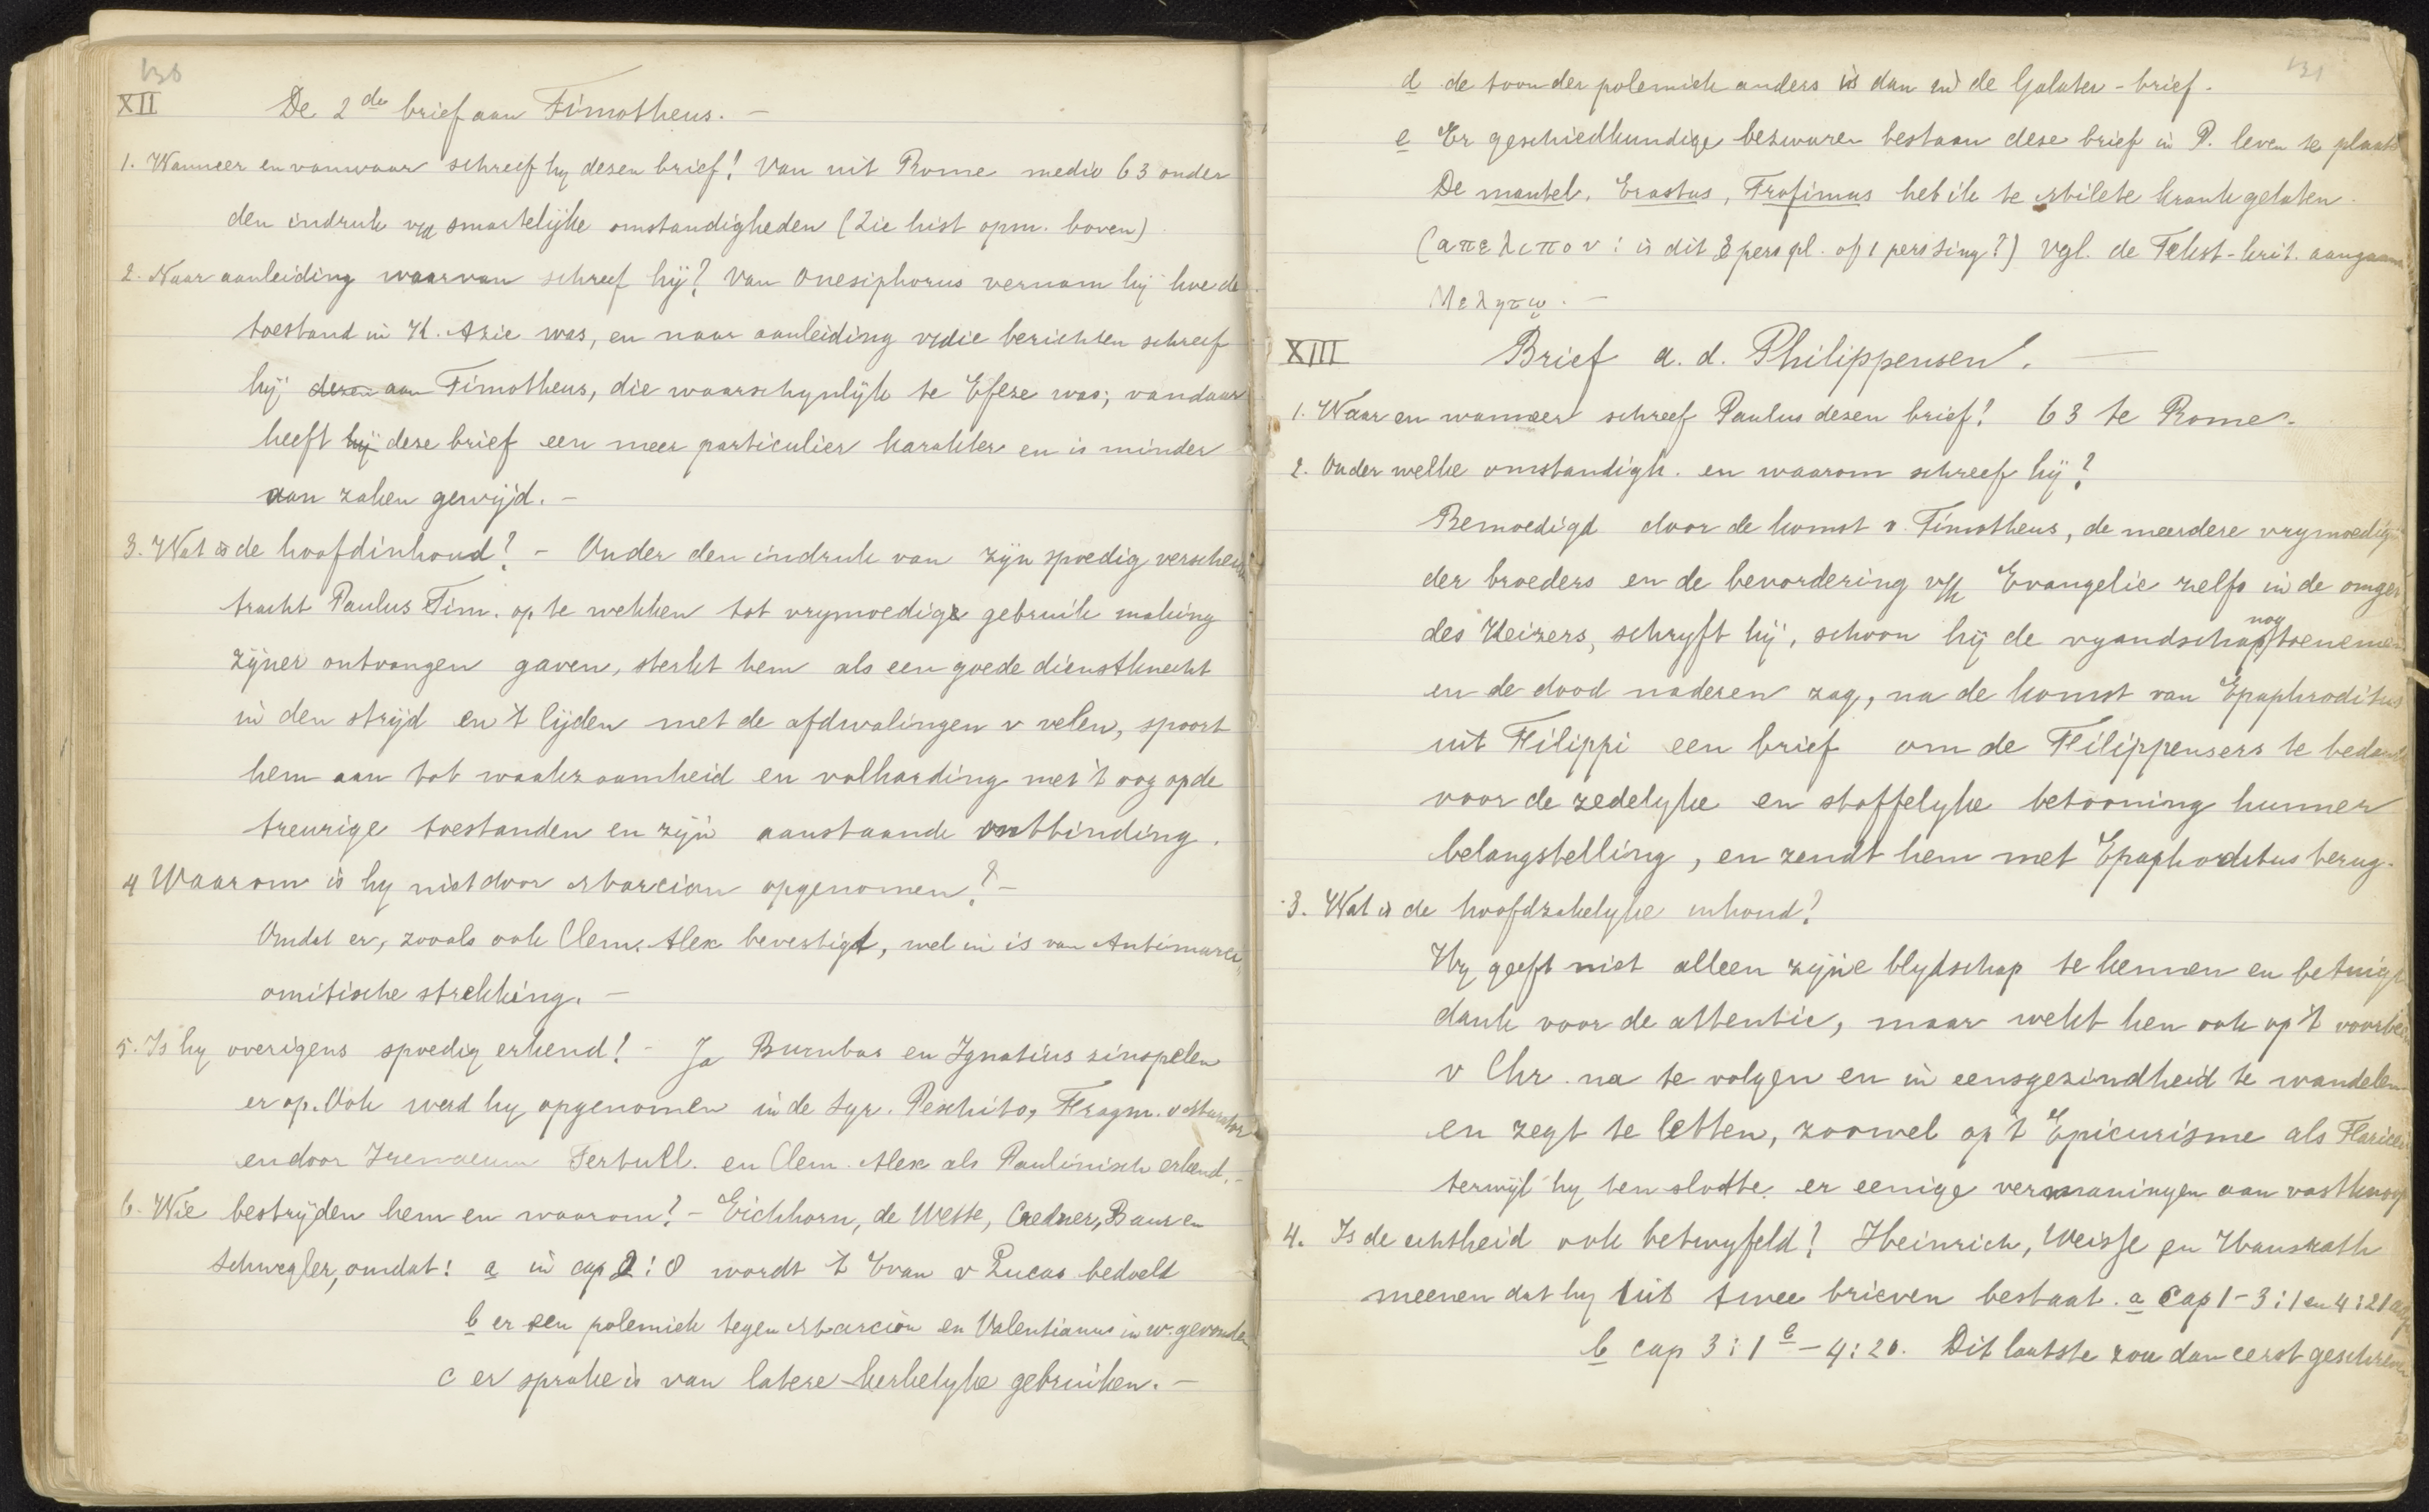 130
XII De 2de brief aan Timotheus. —
1. Wanneer en vanwaar schreef hy desen brief? Van uit Rome medio 63 onder
den indruk v/d smartelijke omstandigheden (Zie hist opm. boven)
2. Naar aanleiding waarvan schreef hij? Van Onesiphorus vernam hij hoe de
toestand in K. Azie was, en naar aanleiding v/die berichten schreef
hij desen aan Timotheus, die waarschynlijk te Efeze was; vandaar
heeft hij deze brief een meer particulier karakter en is minder
aan zaken gewijd. —
3. Wat is de hoofdinhoud? — Onder den indruk van zijn spoedig verscheiden
tracht Paulus Tim. op te wekken tot vrymoedige gebruik making
zijner ontvangen gaven, sterkt hem als een goede dienstknecht
in den strijd en 't lijden met de afdwalingen v velen, spoort
hem aan tot waakzaamheid en volharding met 't oog op de
treurige toestanden en zijn aanstaande ontbinding.
4 Waarom is hy niet door Marcion opgenomen? —
Omdat er, zooals ook Clem. Alex bevestigt, wel in is van Antimarci„
onitische strekking. —
5. Is hy overigens spoedig erkend? — Ja Barnbas en Ignatius zinspelen
er op. Ook werd hy opgenomen in de Syr. Peschito, Fragm. v Murator
en door Irenaeum Tertull. en Clem. Alex als Paulinisch erkend. —
6. Wie bestrijden hem en waarom? — Eichhorn, de Wette, Credner, Baur en
Schwegler, omdat: a in cap 2:8 wordt 't Evan v Lucas bedoeld
b er een polemiek tegen Marcion en Valentianus in w. gevonden
c er sprake is van latere kerkelyke gebruiken. —
131
d de toon der polemiek anders is dan in de Galater-brief.
e Er geschiedkundige bezwaren bestaan deze brief in P. leven te plaats
De mantel, Erastus, Trofimus heb ik te Milete krank gelaten.
(απελιπον: is dit 3 pers pl. of 1 pers sing?) Vgl. de Tekst-krit. aangaan
Μελητῳ. —
XIII Brief a. d. Philippensen. —
1. Waar en wanneer schreef Paulus desen brief? 63 te Rome.
2. Onder welke omstandigh. en waarom schreef hij?
Bemoedigd door de komst v. Timotheus, de meerdere vrymoedig
der broeders en de bevordering v/h Evangelie zelfs in de omge
des Keizers, schryft hij, schoon hij de vyandschap nog toenemen
en de dood naderen zag, na de komst van Epaphroditus
uit Filippi een brief om de Filippensers te bedank
voor de zedelyke en stoffelyke betooning hunner
belangstelling, en zendt hem met Epaphorditus terug.
3. Wat is de hoofdzakelyke inhoud?
Hy geeft niet alleen zijne blydschap te kennen en betuigt
dank voor de attentie, maar wekt hen ook op 't voorbeel
v Chr. na te volgen en in eensgezindheid te wandelen
en zegt te letten, zoowel op 't Epicurisme als Fariseï
terwijl hy ten slotte er eenige vermaningen aan vastknoop
4. Is de echtheid ook betwyfeld? Heinrich, Weisse en Hausrath
meenen dat hy uit twee brieven bestaat. a Cap 1-3:1 en 4:21
b cap 3:1b — 4:20. Dit laatste zou dan eerst geschreven